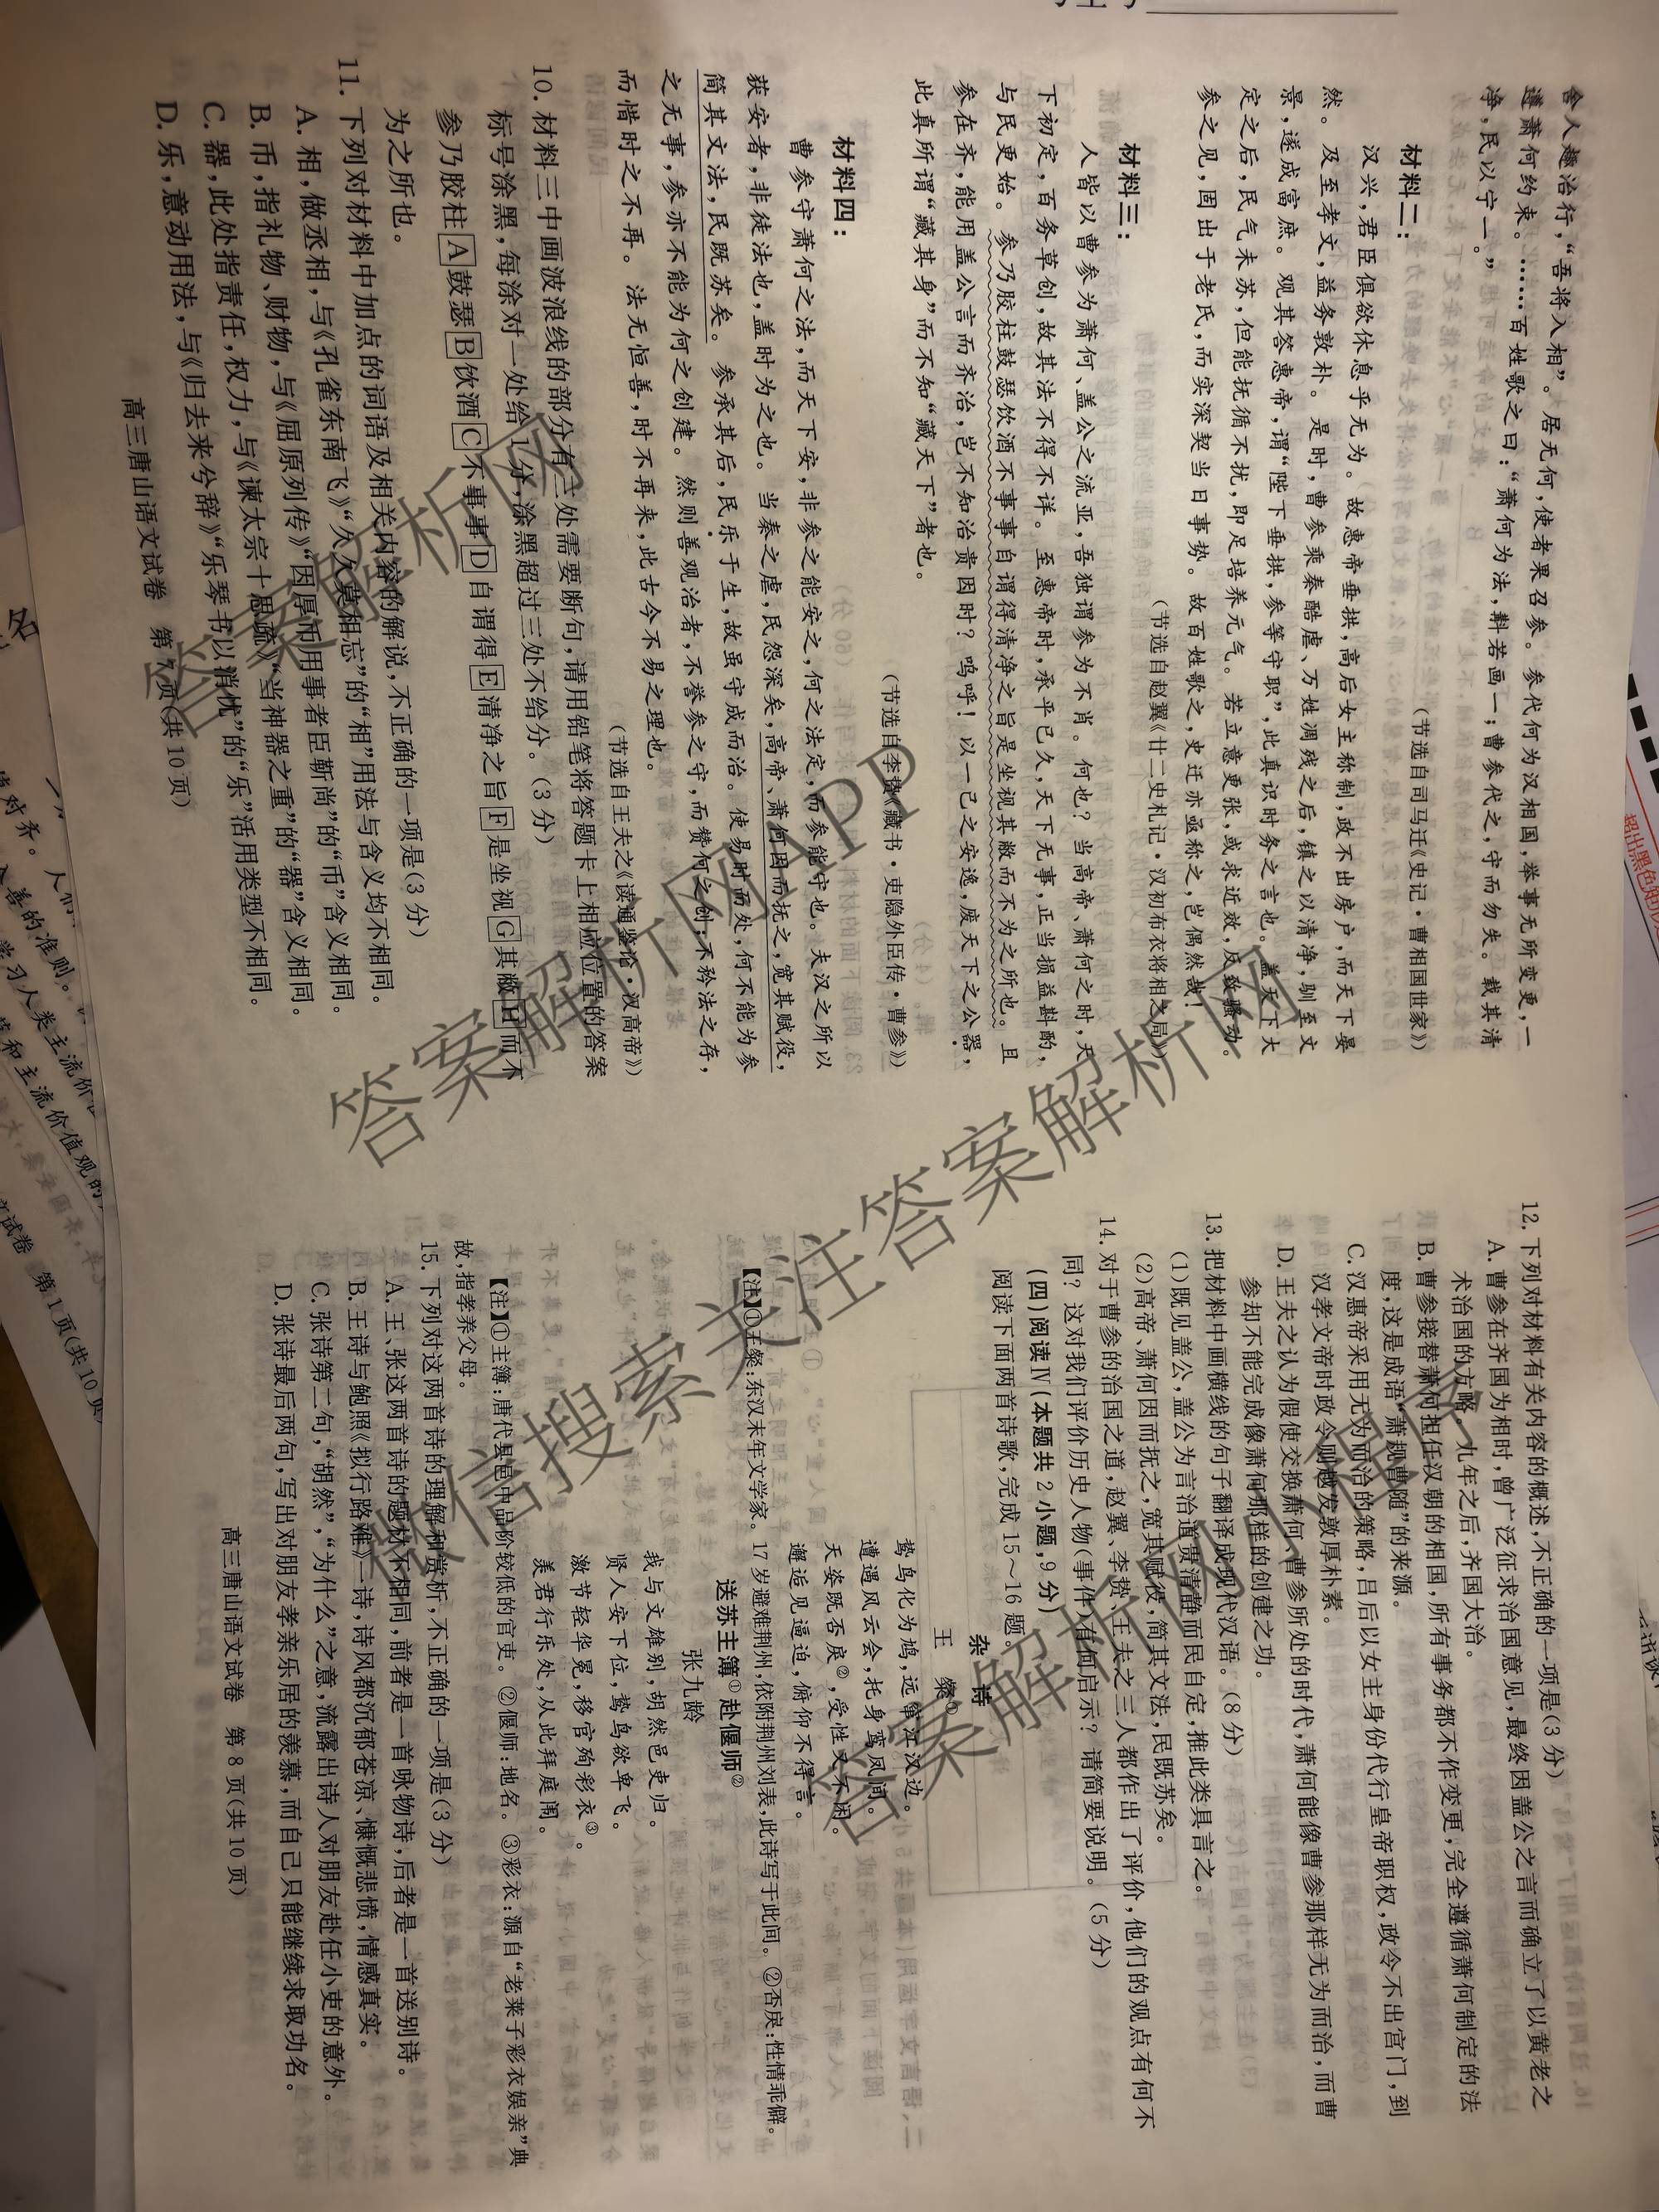 舍人趣治行，“吾将入相”。居无何，使者果召参。参代何为汉相国，举事无所变更，一
遵萧何约束。……百姓歌之曰：“萧何为法，斠若画一；曹参代之，守而勿失。载其清
净，民以宁一。”
（节选自司马迁《史记·曹相国世家》）
材料二：
汉兴，君臣俱欲休息乎无为。故惠帝垂拱，高后女主称制，政不出房户，而天下晏
然。及至孝文，益务敦朴。是时，曹参乘秦酷虐、万姓凋残之后，镇之以清净，驯至文
景，遂成富庶。观其答惠帝，谓“陛下垂拱，参等守职”，此真识时务之言也。盖天下大
定之后，民气未苏，但能抚循不扰，即足培养元气。若立意更张，或求近效，反致骚动。
参之见，固出于老氏，而实深契当日事势。故百姓歌之，史迁亦亟称之，岂偶然哉！
（节选自赵翼《廿二史札记·汉初布衣将相之局》）
材料三：
人皆以曹参为萧何、盖公之流亚，吾独谓参为不肖。何也？当高帝、萧何之时，天
下初定，百务草创，故其法不得不详。至惠帝时，承平已久，天下无事，正当损益斟酌，
与民更始。参乃胶柱鼓瑟饮酒不事事自谓得清净之旨是坐视其敝而不为之所也。且
参在齐，能用盖公言而齐治，岂不知治贵因时？呜呼！以一己之安逸，废天下之公器，
此真所谓“藏其身”而不知“藏天下”者也。
（节选自李贽《藏书·吏隐外臣传·曹参》）
材料四：
曹参守萧何之法，而天下安，非参之能安之，何之法定，而参能守也。夫汉之所以
获安者，非徒法也，盖时为之也。当秦之虐，民怨深矣，高帝、萧何因而抚之，宽其赋役，
简其文法，民既苏矣。参承其后，民乐于生，故虽守成而治。使易时而处，何不能为参
之无事，参亦不能为何之创建。然则善观治者，不誉参之守，而赞何之创；不矜法之存，
而惜时之不再。法无恒善，时不再来，此古今不易之理也。
（节选自王夫之《读通鉴论·汉高帝》）
10. 材料三中画波浪线的部分有三处需要断句，请用铅笔将答题卡上相应位置的答案
标号涂黑，每涂对一处给1分，涂黑超过三处不给分。（3分）
参乃胶柱A鼓瑟B饮酒C不事事D自谓得E清净之旨F是坐视G其敝H而不
为之所也。
11. 下列对材料中加点的词语及相关内容的解说，不正确的一项是（3分）
A. 相，做丞相，与《孔雀东南飞》“久久莫相忘”的“相”用法与含义均不相同。
B. 币，指礼物、财物，与《屈原列传》“因厚币用事者臣靳尚”的“币”含义相同。
C. 器，此处指责任，权力，与《谏太宗十思疏》“当神器之重”的“器”含义相同。
D. 乐，意动用法，与《归去来兮辞》“乐琴书以消忧”的“乐”活用类型不相同。
高三唐山语文试卷　第7页（共10页）
12. 下列对材料有关内容的概述，不正确的一项是（3分）
A. 曹参在齐国为相时，曾广泛征求治国意见，最终因盖公之言而确立了以黄老之
术治国的方略，九年之后，齐国大治。
B. 曹参接替萧何担任汉朝的相国，所有事务都不作变更，完全遵循萧何制定的法
度，这是成语“萧规曹随”的来源。
C. 汉惠帝采用无为而治的策略，吕后以女主身份代行皇帝职权，政令不出宫门，到
汉孝文帝时政令则越发敦厚朴素。
D. 王夫之认为假使交换萧何、曹参所处的时代，萧何能像曹参那样无为而治，而曹
参却不能完成像萧何那样的创建之功。
13. 把材料中画横线的句子翻译成现代汉语。（8分）
（1）既见盖公，盖公为言治道贵清静而民自定，推此类具言之。
（2）高帝、萧何因而抚之，宽其赋役，简其文法，民既苏矣。
14. 对于曹参的治国之道，赵翼、李贽、王夫之三人都作出了评价，他们的观点有何不
同？这对我们评价历史人物（事件）有何启示？请简要说明。（5分）
（四）阅读Ⅳ（本题共2小题，9分）
阅读下面两首诗歌，完成15～16题。
杂　诗
王　粲①
鸷鸟化为鸠，远窜江汉边。
遭遇风云会，托身鸾凤间。
天姿既否戾②，受性又不闲。
邂逅见逼迫，俯仰不得言。
【注】①王粲：东汉末年文学家。17岁避难荆州，依附荆州刘表，此诗写于此间。②否戾：性情乖僻。
送苏主簿①赴偃师②
张九龄
我与文雄别，胡然邑吏归。
贤人安下位，鸷鸟欲卑飞。
激节轻华冕，移官殉彩衣③。
羡君行乐处，从此拜庭闱。
【注】①主簿：唐代县邑中品阶较低的官吏。②偃师：地名。③彩衣：源自“老莱子彩衣娱亲”典
故，指孝养父母。
15. 下列对这两首诗的理解和赏析，不正确的一项是（3分）
A. 王、张这两首诗的题材不相同，前者是一首咏物诗，后者是一首送别诗。
B. 王诗与鲍照《拟行路难》一诗，诗风都沉郁苍凉、慷慨悲愤，情感真实。
C. 张诗第二句，“胡然”，“为什么”之意，流露出诗人对朋友赴任小吏的意外。
D. 张诗最后两句，写出对朋友孝亲乐居的羡慕，而自己只能继续求取功名。
高三唐山语文试卷　第8页（共10页）
答案解析网
答案解析网APP
微信搜索关注答案解析网
答案解析网
超出黑色矩形
人类主流价
和主流价值观的
善的准则。
试卷　第1页（共10页）